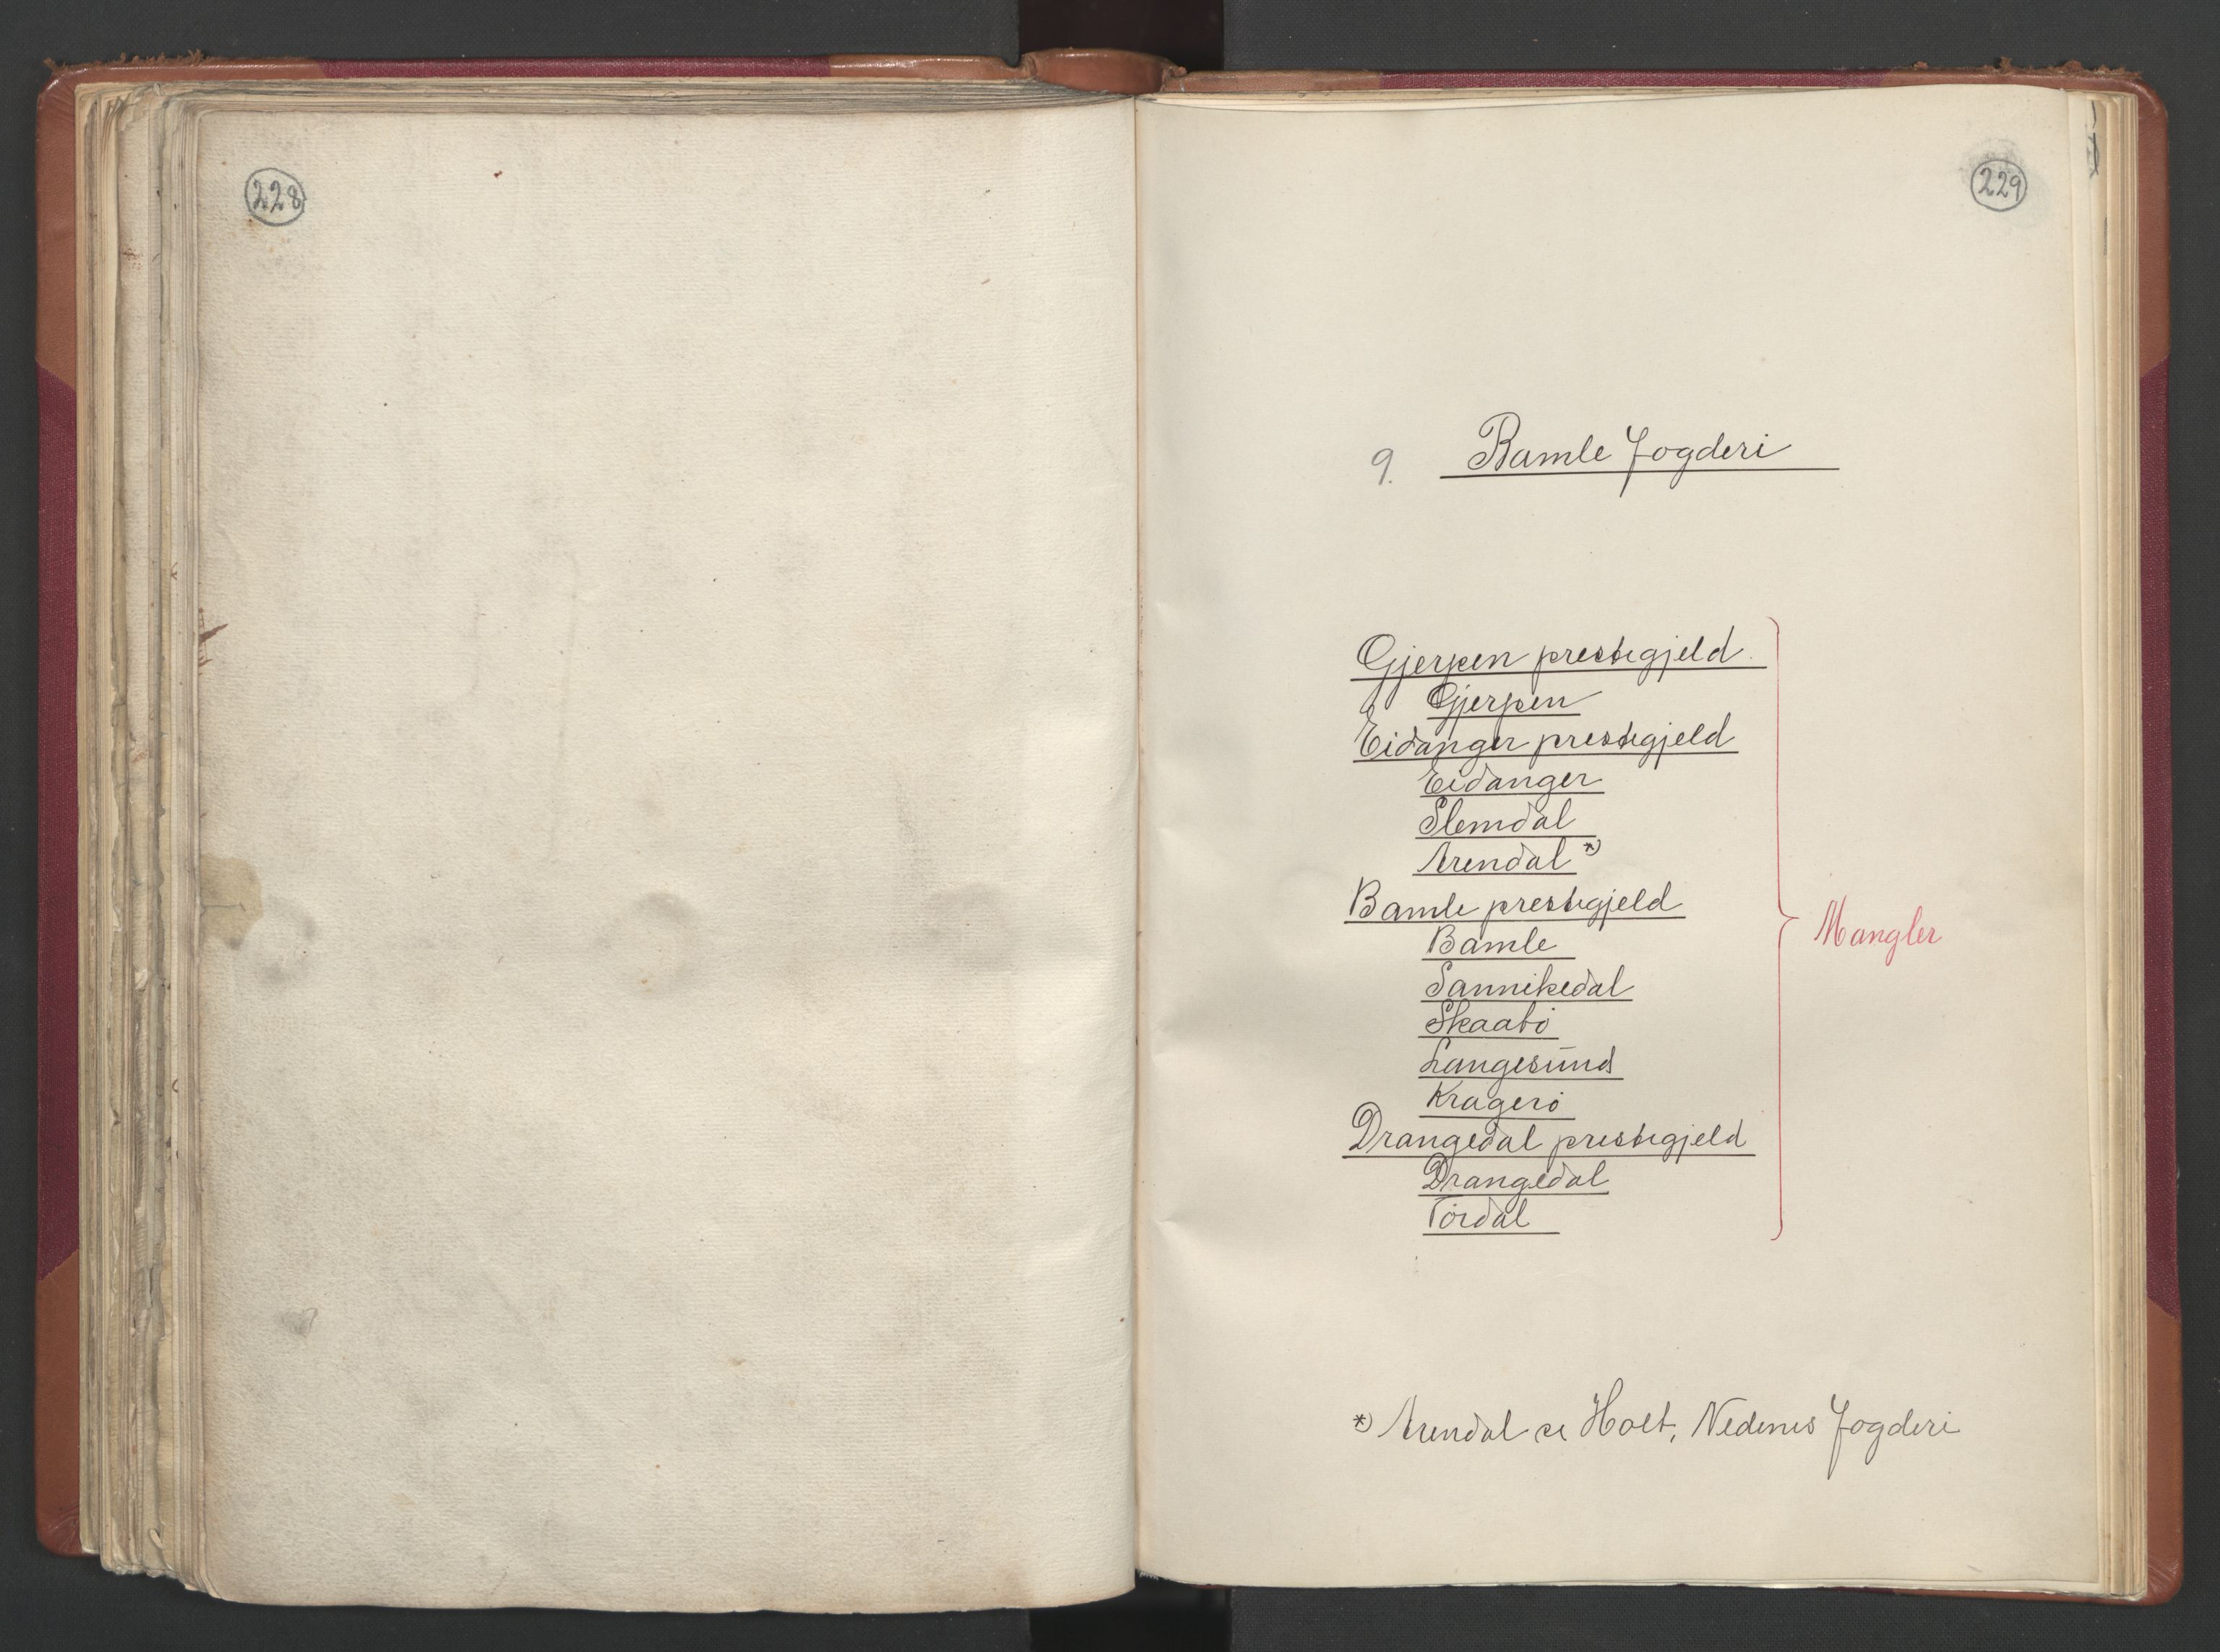 228
229
9. Bamle Fogderi
Gjerpen prestegjeld.
Gjerpen
Eidanger prestegjeld
Eidanger
Slemdal
Arendal *)
Bamle prestegjeld
Bamle
Sannikedal
Skaatø
Langesund
Kragerø
Drangedal prestegjeld
Drangedal
Tørdal
Mangler
*) Arendal se Holt, Nedenes Fogderi